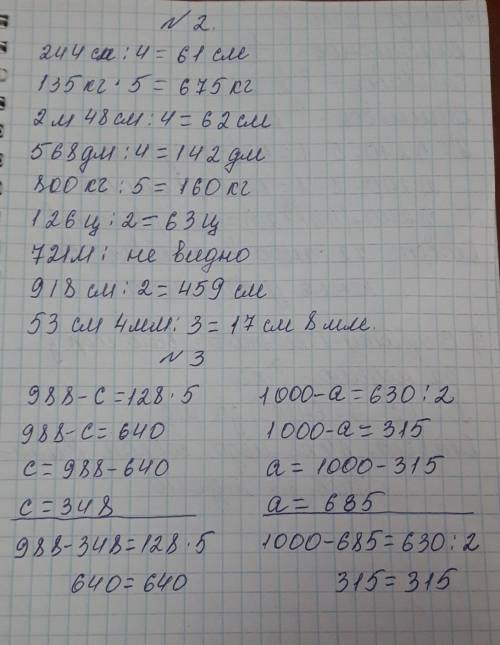 № 2.
244 см : 4 = 61 см
135 кг · 5 = 675 кг
2 м 48 см : 4 = 62 см
568 дм : 4 = 142 дм
800 кг : 5 = 160 кг
126 ц : 2 = 63 ц
721м : не видно
918 см : 2 = 459 см
53 см 4 мм : 3 = 17 см 8 мм.
№ 3
988 - с = 128 · 5
988 - с = 640
с = 988 - 640
с = 348
988 - 348 = 128 · 5
640 = 640
1000 - а = 630 : 2
1000 - а = 315
а = 1000 - 315
а = 685
1000 - 685 = 630 : 2
315 = 315